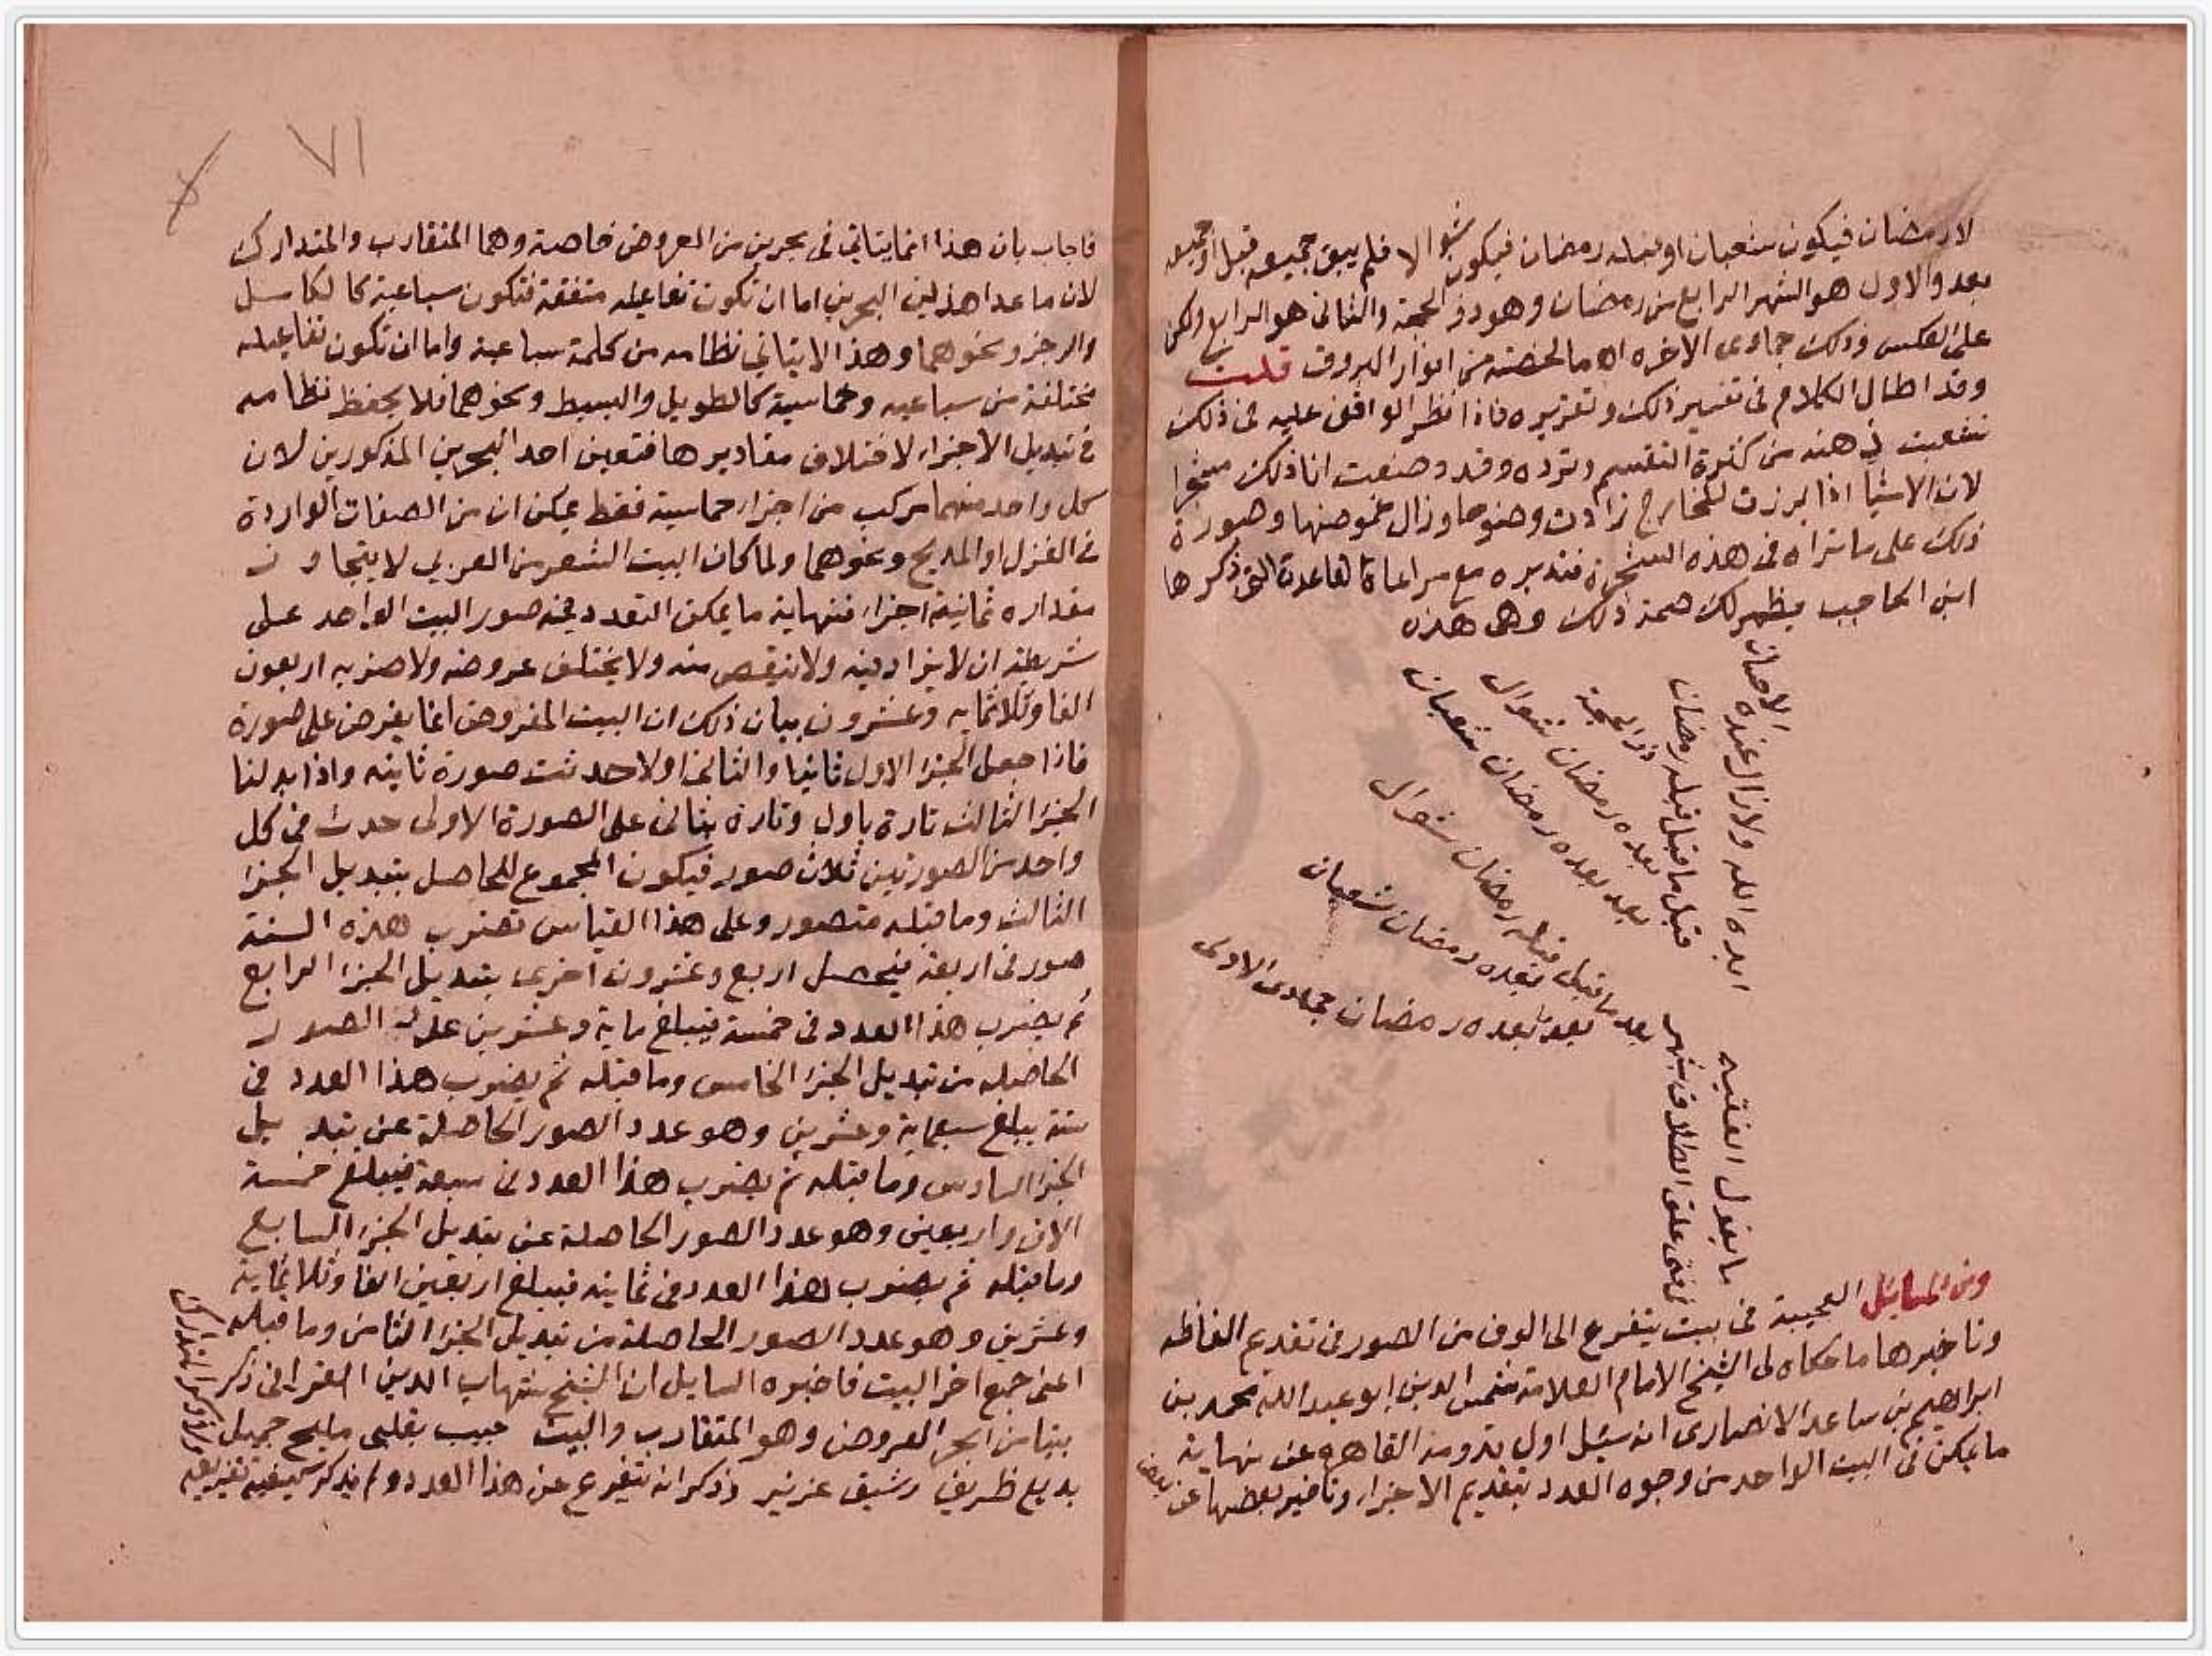 لا رمضان فيكون شعبان او قبله رمضان فيكون شوالا فلم يبق جميعه قبل او جميعه
بعد والاول هو الشهر الرابع من رمضان وهو ذو الحجة والثانى هو الرابع ولكن
على العكس وذلك جمادى الاخره اه ما لخصته من انوار البروق قلت
وقد اطال الكلام فى تفسير ذلك وتقريره فاذا نظر الواقف عليه فى ذلك
تشعبت ذهنه من كثرة التقسيم وتردده وقد وضعت انا ذلك مشجرا
لان الاشيا اذا برزت للخارج زادت وضوحا وزال غموضها وصورة
ذلك على ما تراه فى هذه الشجرة فتدبره مع مراعاة القاعدة التى ذكرها
ابن الحاجب يظهر لك صحة ذلك وهى هذه
ما يقول الفقيه ايده الله ولا زال عنده الاحسان
فى فتى علق الطلاق بشهر قبل ما قبل قبله رمضان
ذو الحجة
بعده رمضان شوال
بعد بعده رمضان شعبان
بعد ما قبل قبله رمضان شوال
بعده رمضان شعبان
بعد بعده رمضان جمادى الاولى
ومن المسائل العجيبة فى بيت يتفرع الى الوف من الصور فى تقديم الفاظه
وتاخيرها ما حكاه لى الشيخ الامام العلامة شمس الدين ابو عبد الله محمد بن
ابراهيم بن ساعد الانصارى انه سئل اول قدومه القاهرة عن نهاية
ما يمكن فى البيت الواحد من وجوه العدد بتقديم الاجزاء وتاخير بعضها عن بعض
٧١
فاجاب بان هذا انما يتاتى فى بحرين من العروض خاصة وهما المتقارب والمتدارك
لان ما عدا هذين البحرين اما ان تكون تفاعيله متفقة فتكون سباعية كالكامل
والرجز ونحوهما وهذا لا يتاتى نظامه من كلمة سباعية واما ان تكون تفاعيله
مختلفة من سباعيه وخماسية كالطويل والبسيط ونحوهما فلا يحفظ نظامه
فى تبديل الاجزاء لاختلاف مقاديرها فتعين احد البحرين المذكورين لان
كل واحد منهما مركب من اجزاء خماسية فقط يمكن ان من الصفات الواردة
فى الغزل او المديح ونحوهما ولما كان البيت الشعر من العربي لا يتجاوز
مقداره ثمانية اجزاء فنهاية ما يمكن التعدد فيه صور البيت الواحد على
شريطة ان لا يزاد فيه ولا ينقص منه ولا يختلف عروضه ولا ضربه اربعون
الفا وثلاثمايه وعشرون بيان ذلك ان البيت المفروض انما يفرض على صورة
فاذا جعل الجزء الاول ثانيا والثانى اولا حدثت صورة ثانيه واذا بدلنا
الجزء الثالث تارة باول وتارة بثانى على الصورة الاولى حدث فى كل
واحد من الصورتين ثلاث صور فيكون المجموع الحاصل بتبديل الجزء
الثالث وما قبله متصور وعلى هذا القياس تضرب هذه الستة
صور فى اربعة فيحصل اربع وعشرون اخرى بتبديل الجزء الرابع
ثم يضرب هذا العدد فى خمسة فيبلغ ماية وعشرين عدة الصور
الحاصله من تبديل الجزء الخامس وما قبله ثم يضرب هذا العدد فى
ستة يبلغ سبعماية وعشرين وهو عدد الصور الحاصلة عن تبديل
الجزء السادس وما قبله ثم يضرب هذا العدد فى سبعة فيبلغ خمسة
الاف واربعين وهو عدد الصور الحاصلة عن تبديل الجزء السابع
وما قبله ثم يضرب هذا العدد فى ثمانية فيبلغ اربعين الفا وثلاثماية
وعشرين وهو عدد الصور الحاصلة من تبديل الجزء الثامن وما قبله
اعنى جميع اخر البيت فاخبره السايل ان الشيخ شهاب الدين القرافى ذكر
بيتا من ابحر العروض وهو المتقارب والبيت حبيب بقلبى مليح جميل
بديع ظريف رشيق عزيز وذكر انه يتفرع عن هذا العدد ولم يذكر كيفية تفريعه
ولا ذكر المتدارك